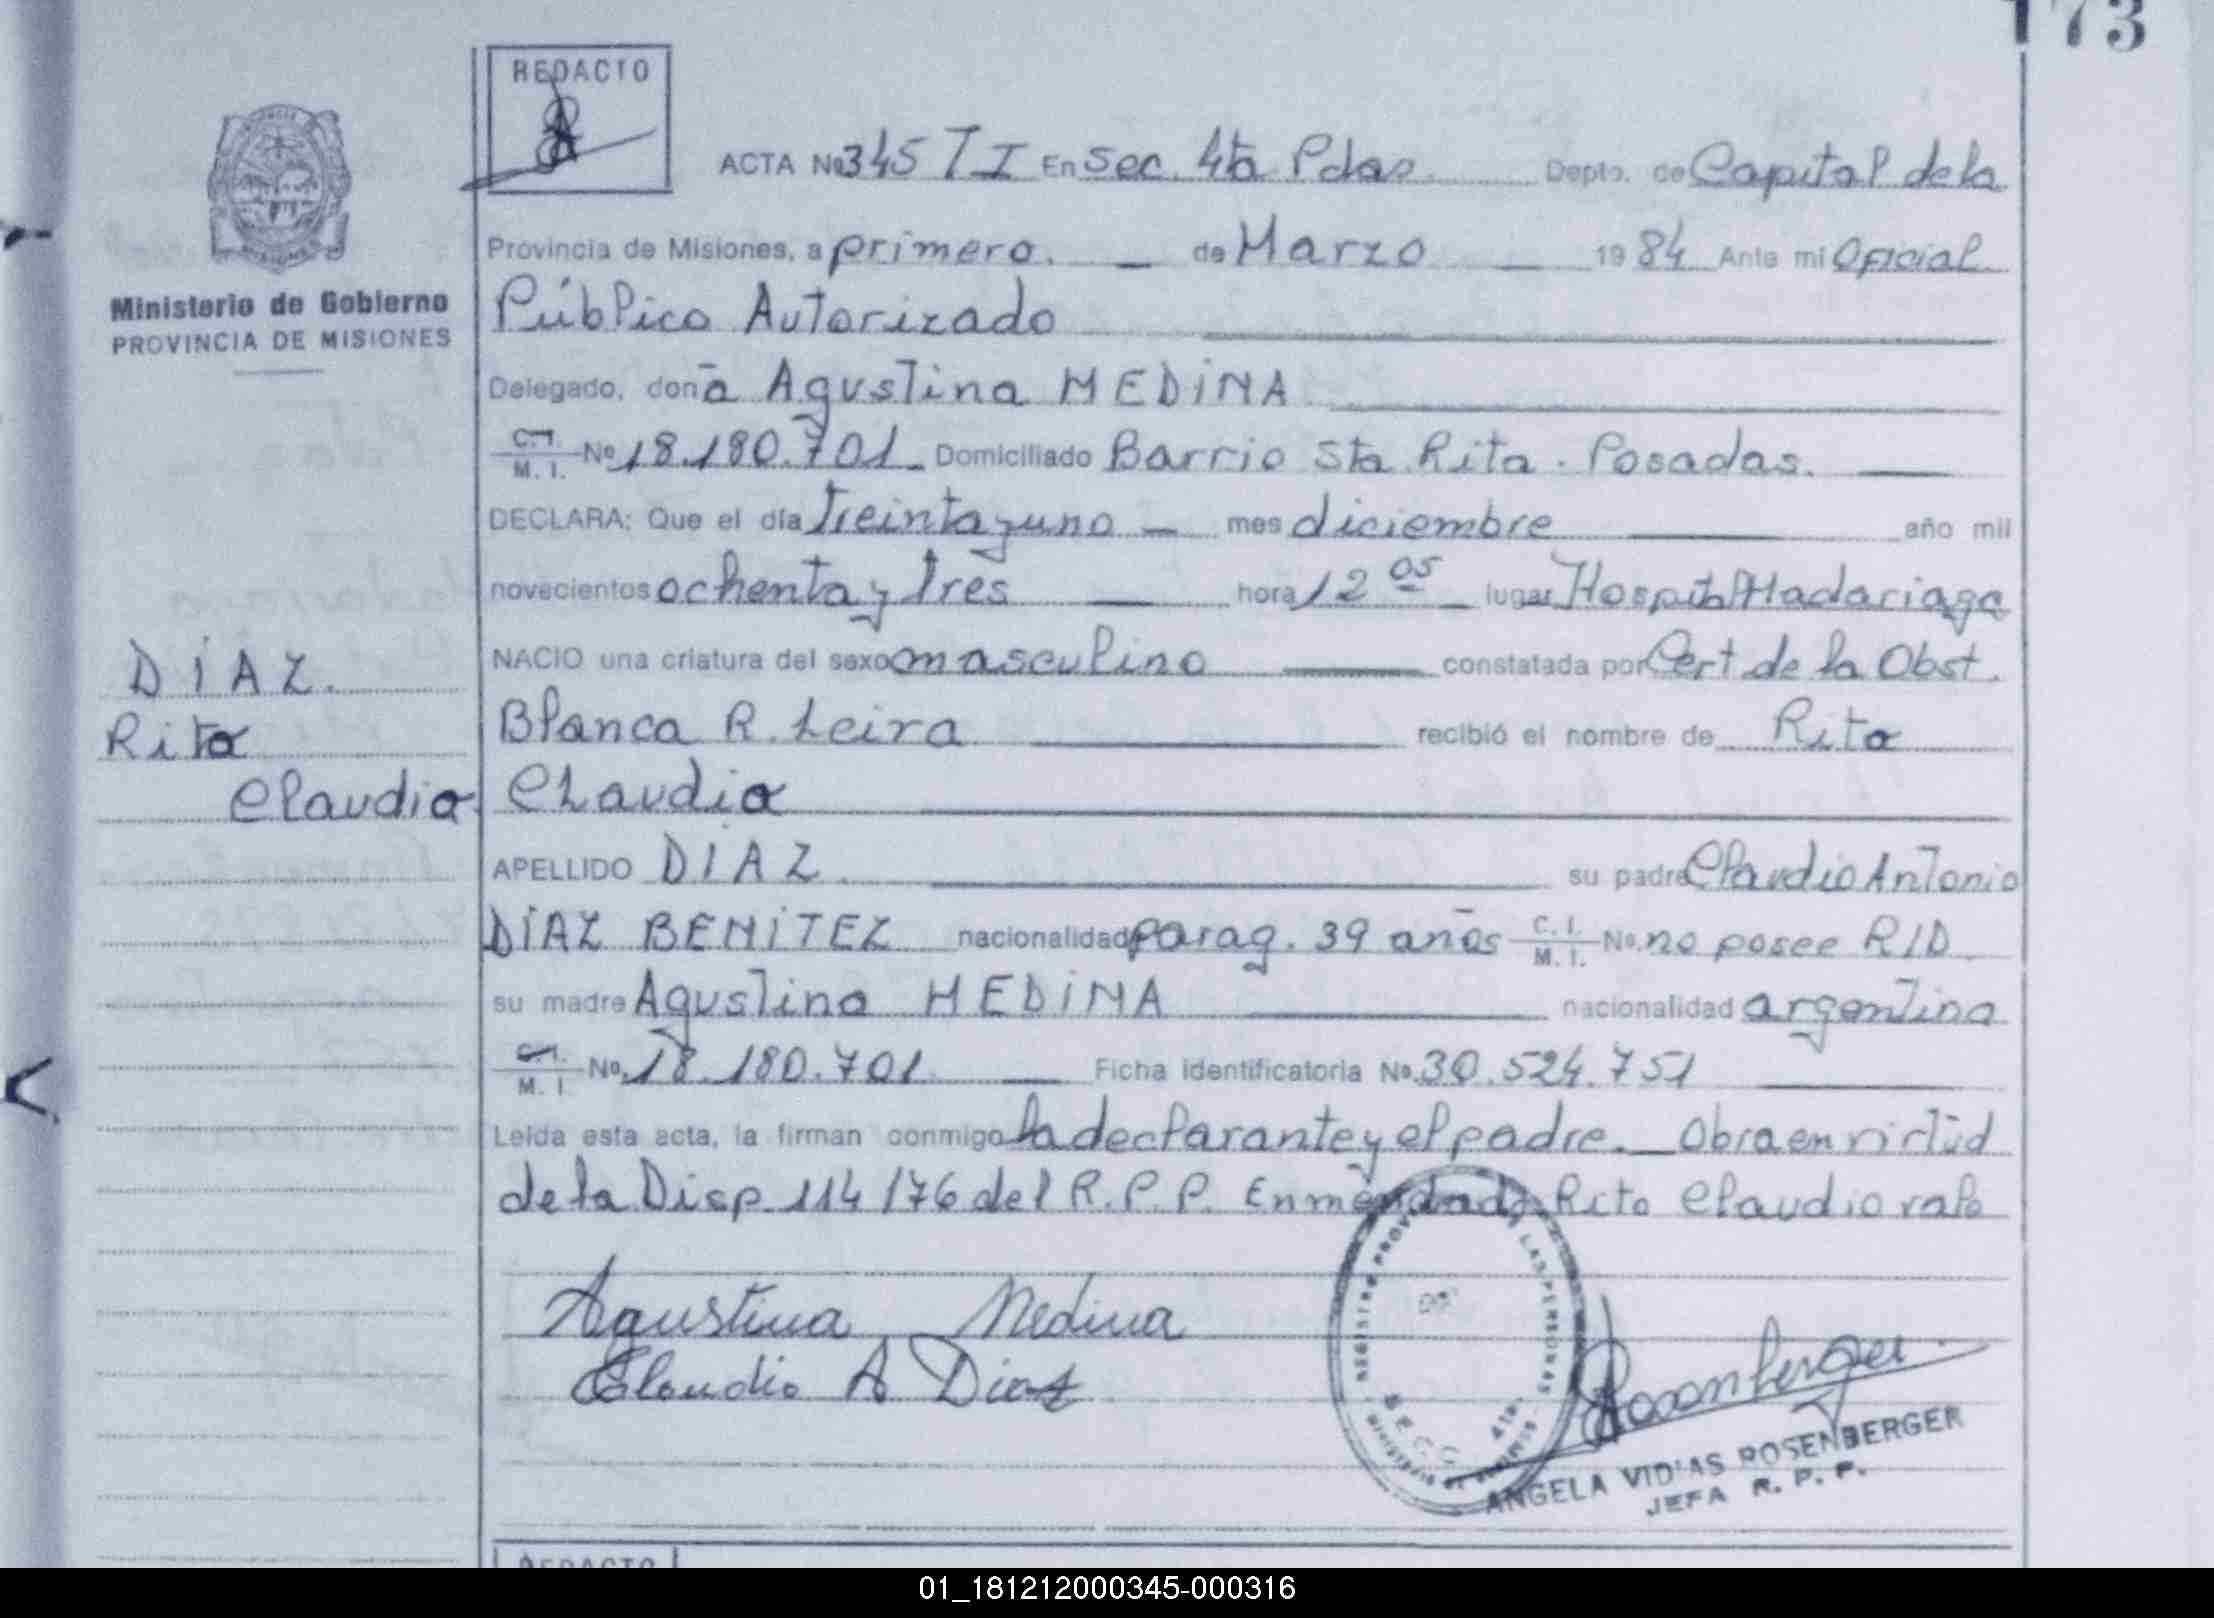 173
REDACTO
ACTA Nº 345 T I En Sec. 4ta Pdas. Depto. de Capital de la
Provincia de Misiones, a primero. de Marzo 1984 Ante mi Oficial
Público Autorizado
Ministerio de Gobierno
PROVINCIA DE MISIONES
Delegado, doña Agustina MEDINA
C.I. M.I. Nº 18.180.701 Domiciliado Barrio Sta Rita. Posadas.
DECLARA: Que el día treinta y uno mes diciembre año mil
novecientos ochenta y tres hora 12 05 lugar Hospital Madariaga
NACIO una criatura del sexo masculino constatada por Cert de la Obst.
DIAZ.
Rita
Claudia
Blanca R. Leira recibió el nombre de Rita
Claudia
APELLIDO DIAZ su padre Claudio Antonio
DIAZ BENITEZ nacionalidad parag. 39 años C.I. M.I. No. no posee RID
su madre Agustina MEDINA nacionalidad argentina
C.I. M.I. No. 18.180.701 Ficha identificatoria No. 30.524.751
Leída esta acta, la firman conmigo la declarante y el padre. Obra en virtud
de la Disp. 114/76 del R.P.P. Enmendado Rito Claudio vale
Agustina Medina
Claudio A Diaz
REGISTRO PROV LAS PERSONAS
SECC. 4ta.
MISIONES
Rosenberger
ANGELA VIDAS ROSENBERGER
JEFA R. P. P.
REDACTO
01_181212000345-000316